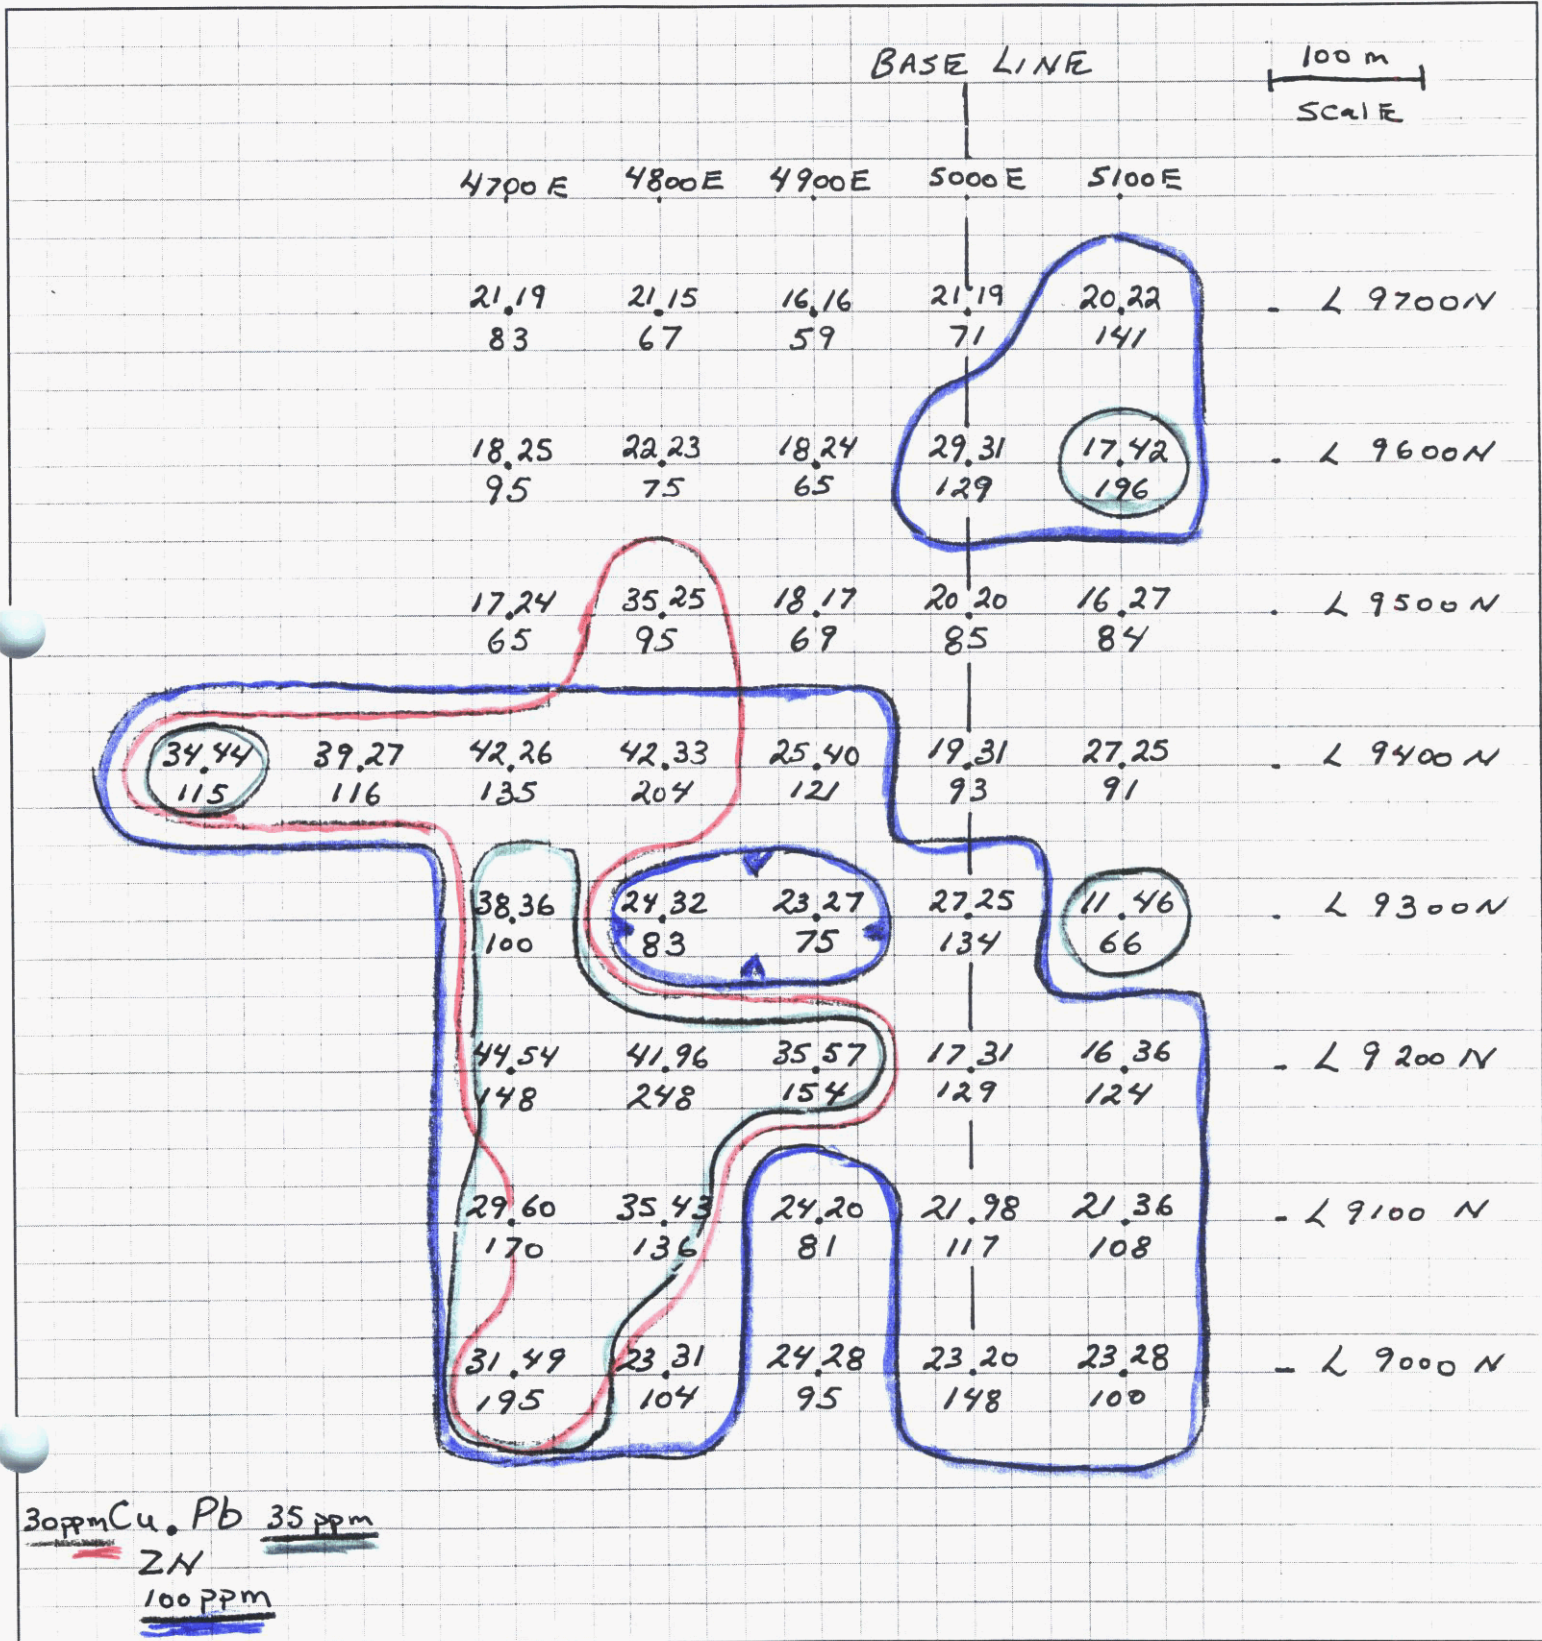 BASE LINE
100 m
SCALE
4700E 4800E 4900E 5000E 5100E
21.19 21.15 16.16 21.19 20.22 - L 9700N
83 67 59 71 141
18.25 22.23 18.24 29.31 17.42 - L 9600N
95 75 65 129 196
17.24 35.25 18.17 20.20 16.27 - L 9500N
65 95 69 85 84
34.44 39.27 42.26 42.33 25.40 19.31 27.25 - L 9400N
115 116 135 204 121 93 91
38.36 24.32 23.27 27.25 11.46 - L 9300N
100 83 75 134 66
44.54 41.96 35.57 17.31 16.36 - L 9200N
148 248 154 129 124
29.60 35.43 24.20 21.98 21.36 - L 9100 N
170 136 81 117 108
31.49 23.31 24.28 23.20 23.28 - L 9000 N
195 104 95 148 100
30ppm Cu. Pb 35 ppm
ZN
100 ppm